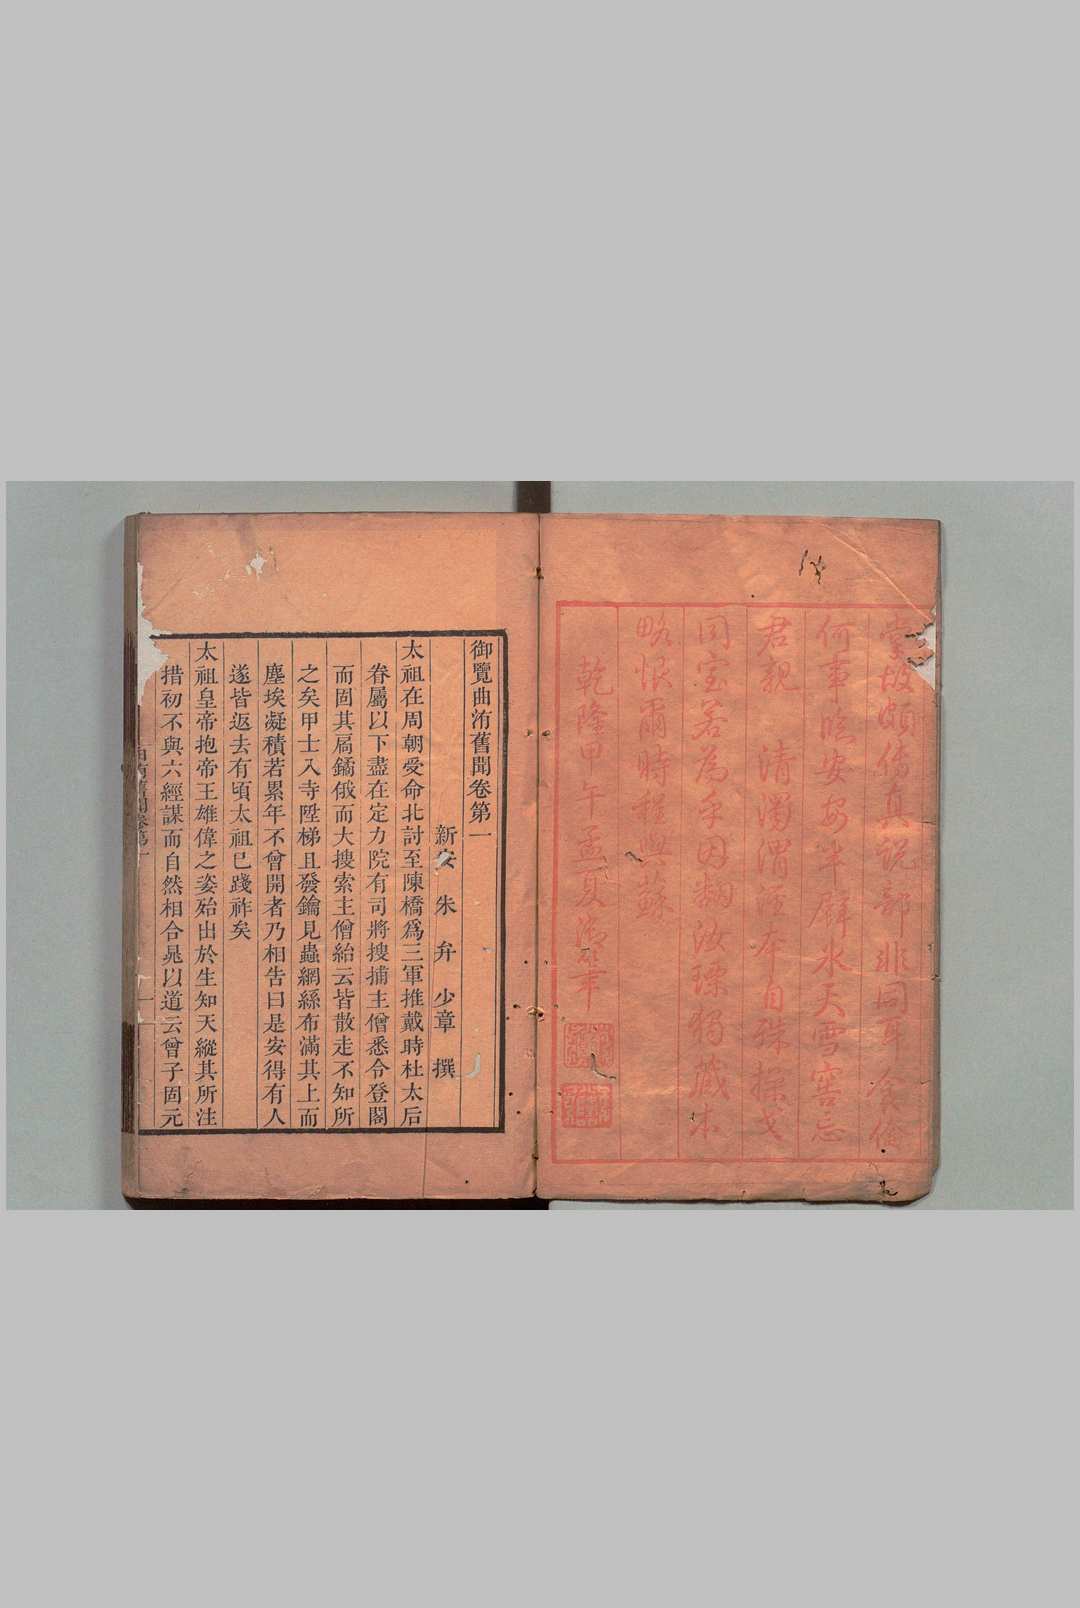 掌故頗傳真說部非同耳食倫
何事臨安安半壁水天雪窖忘
君親 清濁渭涇本自殊採戈
同室若為乎因翻汝璪獨藏本
略恨爾時程與蘇
乾隆甲午孟夏御筆
御覽曲洧舊聞卷第一
新安 朱 弁 少章 撰
太祖在周朝受命北討至陳橋爲三軍推戴時杜太后
眷屬以下盡在定力院有司將搜捕主僧悉令登閣
而固其扃鐍俄而大搜索主僧紿云皆散走不知所
之矣甲士入寺陞梯且發鑰見蟲網絲布滿其上而
塵埃凝積若累年不曾開者乃相告曰是安得有人
遂皆返去有頃太祖已踐祚矣
太祖皇帝抱帝王雄偉之姿殆出於生知天縱其所注
措初不與六經謀而自然相合晁以道云曾子固元
曲洧舊聞卷第一
一